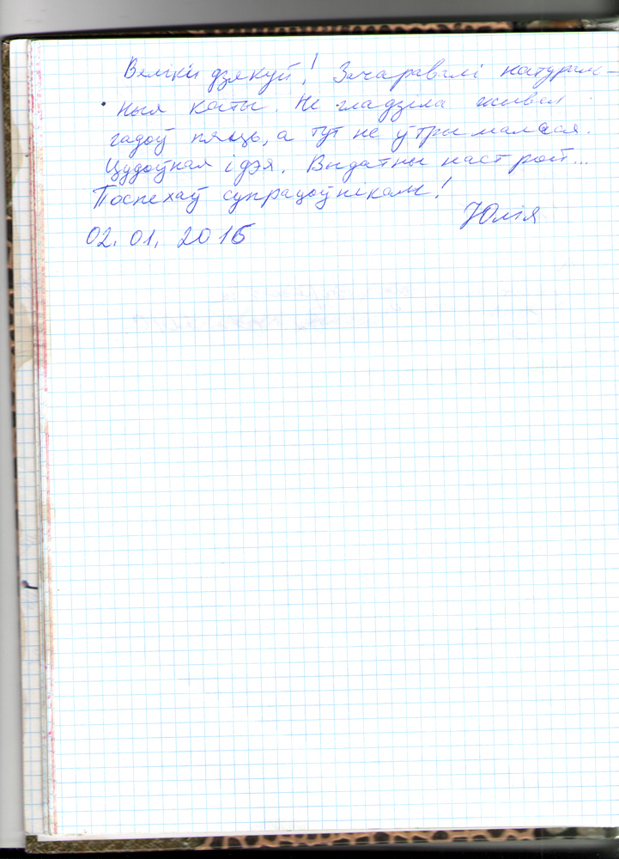 Вялікі дзякуй! Зачаравалі натураль-
ныя каты. Не гладзіла жывёл
гадоў пяць, а тут не ўтрымалася.
Цудоўная ідэя. Выдатны настрой...
Поспехаў супрацоўнікам!
Юлія
02.01.2016